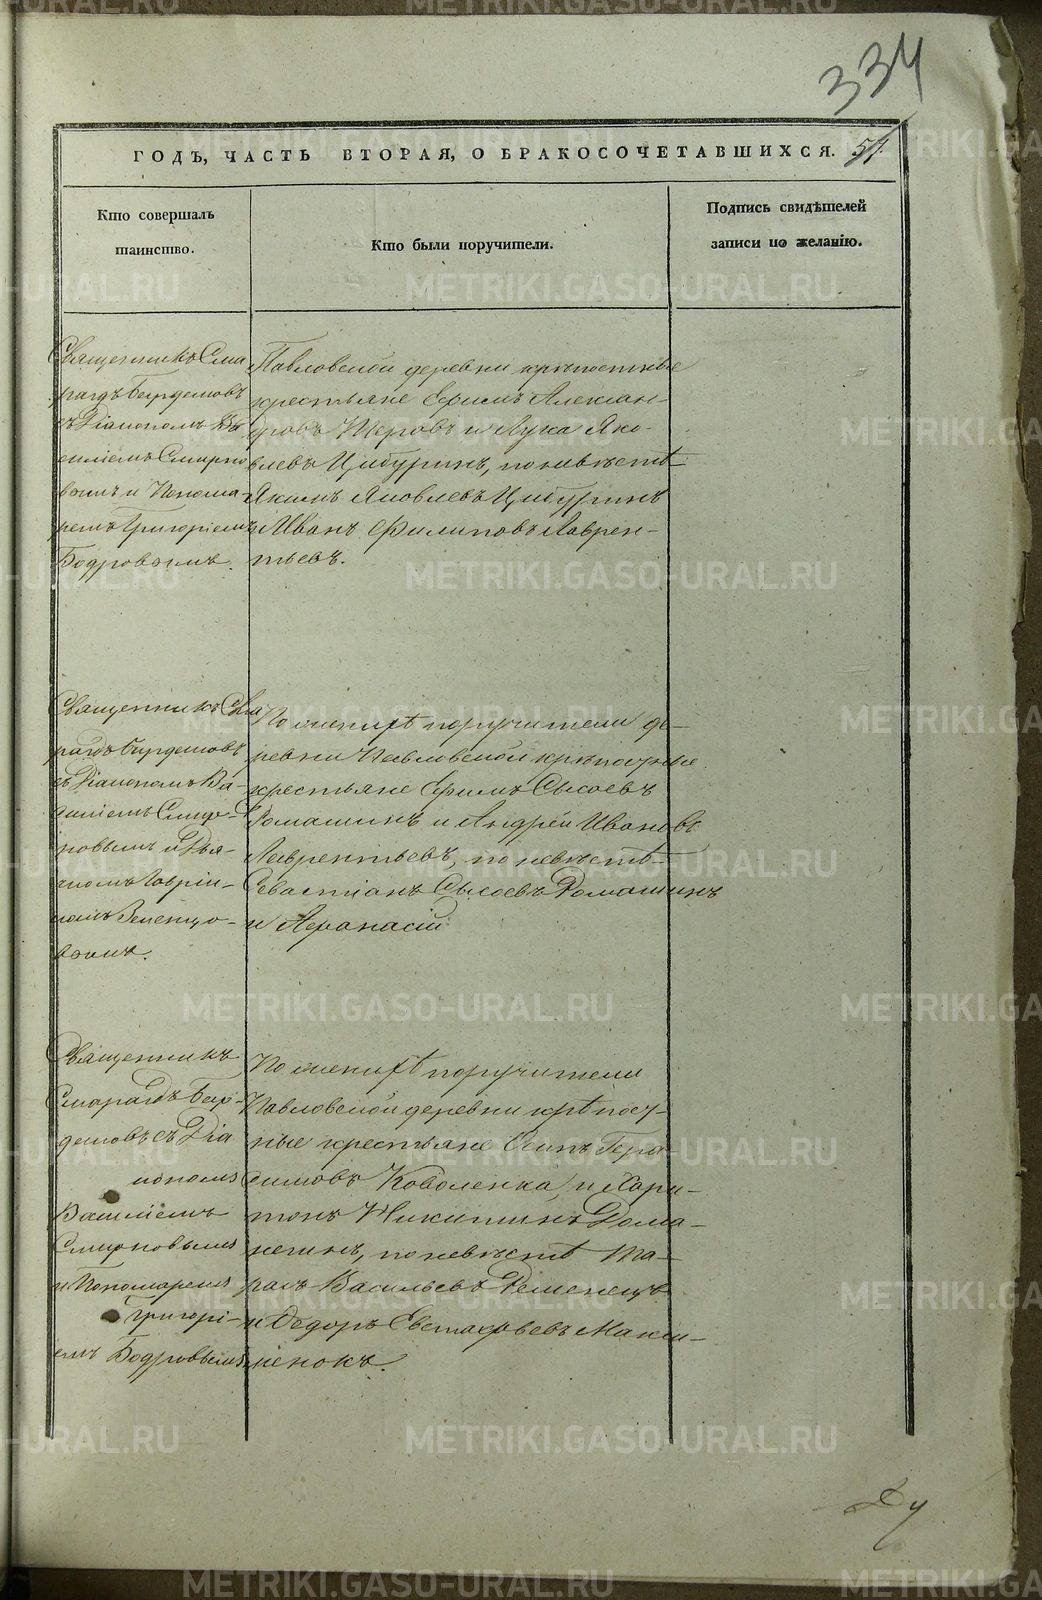 334
ГОДЪ, ЧАСТЬ ВТОРАЯ, О БРАКОСОЧЕТАВШИХСЯ. 51
Кто совершалъ
таинство.
Кто были поручители.
Подпись свидѣтелей
записи по желанію.
Священникъ Сма
рагдъ Бирдемовъ
съ Діакономъ Ва
силіемъ Смирно
вымъ и Понома
ремъ Григоріемъ
Бодровымъ.
Павловской деревни крѣпостные
крестьяне Ефимъ Алексан-
дровъ Шеровъ и Лука Яко-
влевъ Цибуринъ, по невѣстѣ
Якимъ Яковлевъ Цибуринъ
и Иванъ Филиповъ Лаврен-
тьевъ.
Священникъ Сма
рагдъ Бирдемовъ
съ Діакономъ Ва-
силіемъ Смир-
новымъ и Дья-
чкомъ Гаврии-
ломъ Земенцо-
вымъ.
По женихѣ поручители де-
ревни Павловской крѣпостные
крестьяне Ефимъ Сысоевъ
Ромашинъ и Андрей Ивановъ
Лаврентьевъ, по невѣстѣ
Севастіанъ Сысоевъ Ромашинъ
и Афанасій
Священникъ
Смарагдъ Бир-
демовъ съ Діа
кономъ
Василіемъ
Смирновымъ
и Пономаремъ
Григорі-
емъ Бодровымъ
По женихѣ поручители
Павловской деревни крѣпост-
ные крестьяне Осипъ Гера-
симовъ Коваленка, и Хари-
тонъ Никитинъ Рома-
ненинъ, по невѣстѣ Та-
расъ Васильевъ Ременецъ
и Федоръ Евстафьевъ Макси-
менокъ.
METRIKI.GASO-URAL.RU